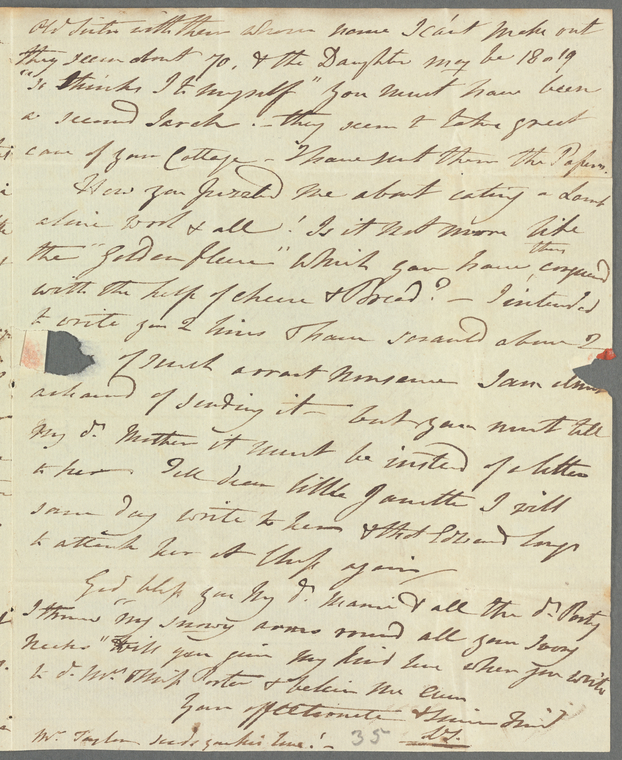 old Sister with them whose name I can't make out
they seem about 70, & the Daughter may be 18 or 19
"So thinks I to myself" you must have been
a second Sarah. - they seem to take great
care of your Cottage - I have sent them the Papers.
How you puzzled me about eating a Lamb
alive wool & all! Is it not more like
the "Golden fleece" which you have thus conquered
with the help of cheese & Bread? - I intended
to write you 2 lines & have scrawled above 2
of such arrant nonsense I am almost
ashamed of sending it - but you must tell
My dr. Mother it must be instead of a letter
to her. Tell dear little Janette I will
some day write to her & that Edward longs
to attack her at Chess again
God bless you My dr. & all the dr. Party
I throw "my snowy arms round all your Ivory
Necks" Will you give my kind love when you write
to dr. Mrs. & Miss Porter & believe me Ever
Your affectionate & Sincere
Mr. Taylor sends you his love! - 35